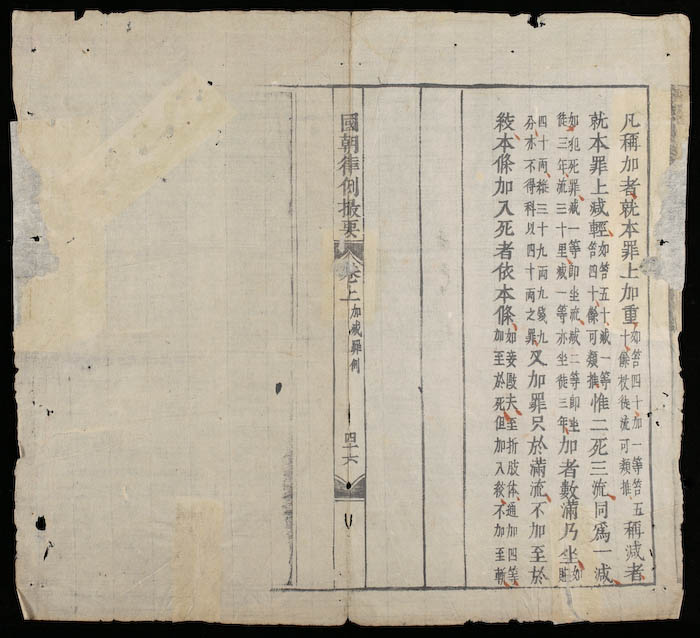 凡稱加者就本罪上加重如笞四十加一等笞五十餘杖徒流可類推稱减者
就本罪上减輕如笞五十减一等笞四十餘可類推惟二死三流同爲一减
如犯死罪减一等即坐流减二等即坐徒三年流三千里减一等亦坐徒三年加者數滿乃坐如贓
四十兩縱三十九兩九錢九分亦不得科以四十兩之罪又加罪只於滿流不加至於
絞本條加入死者依本條如妾敺夫至折肢体通加四等加至於死但加入絞不加至斬
國朝律例撮要 卷上 加减罪例 四十六